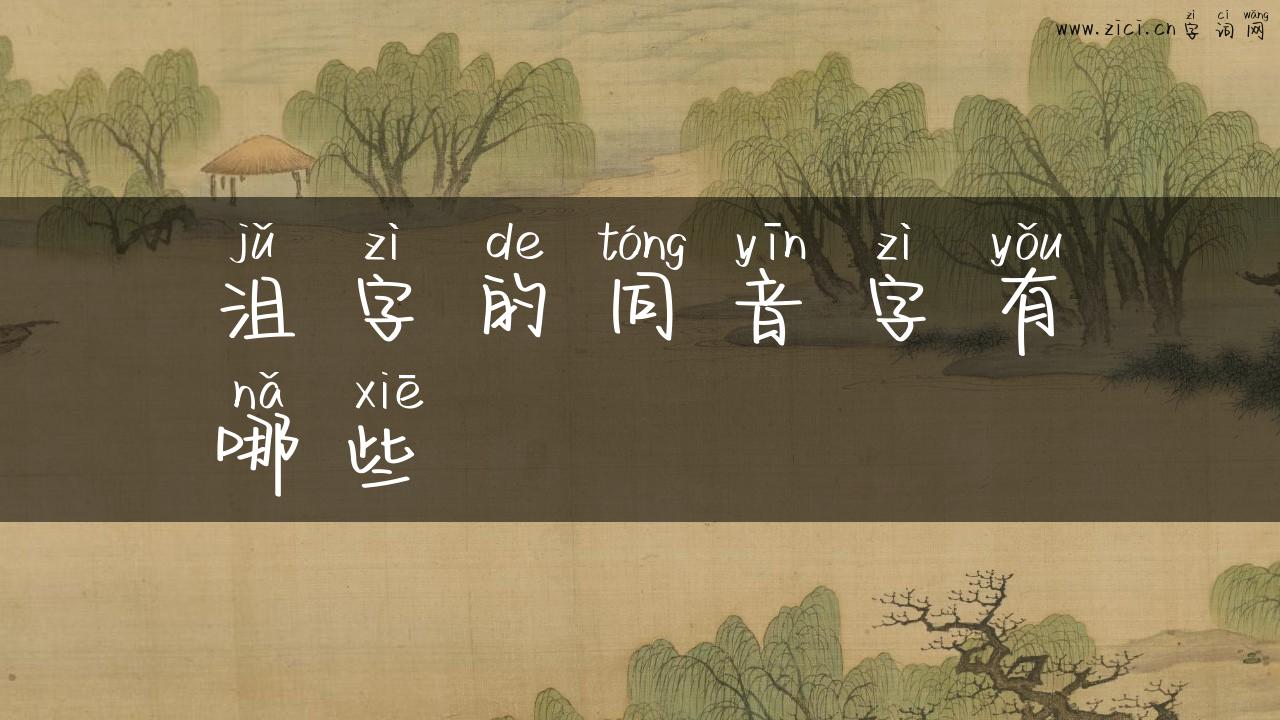 zì cí wǎng
www.zici.cn 字 词 网
jǔ zì de tóng yīn zì yǒu
沮 字 的 同 音 字 有
nǎ xiē
哪 些